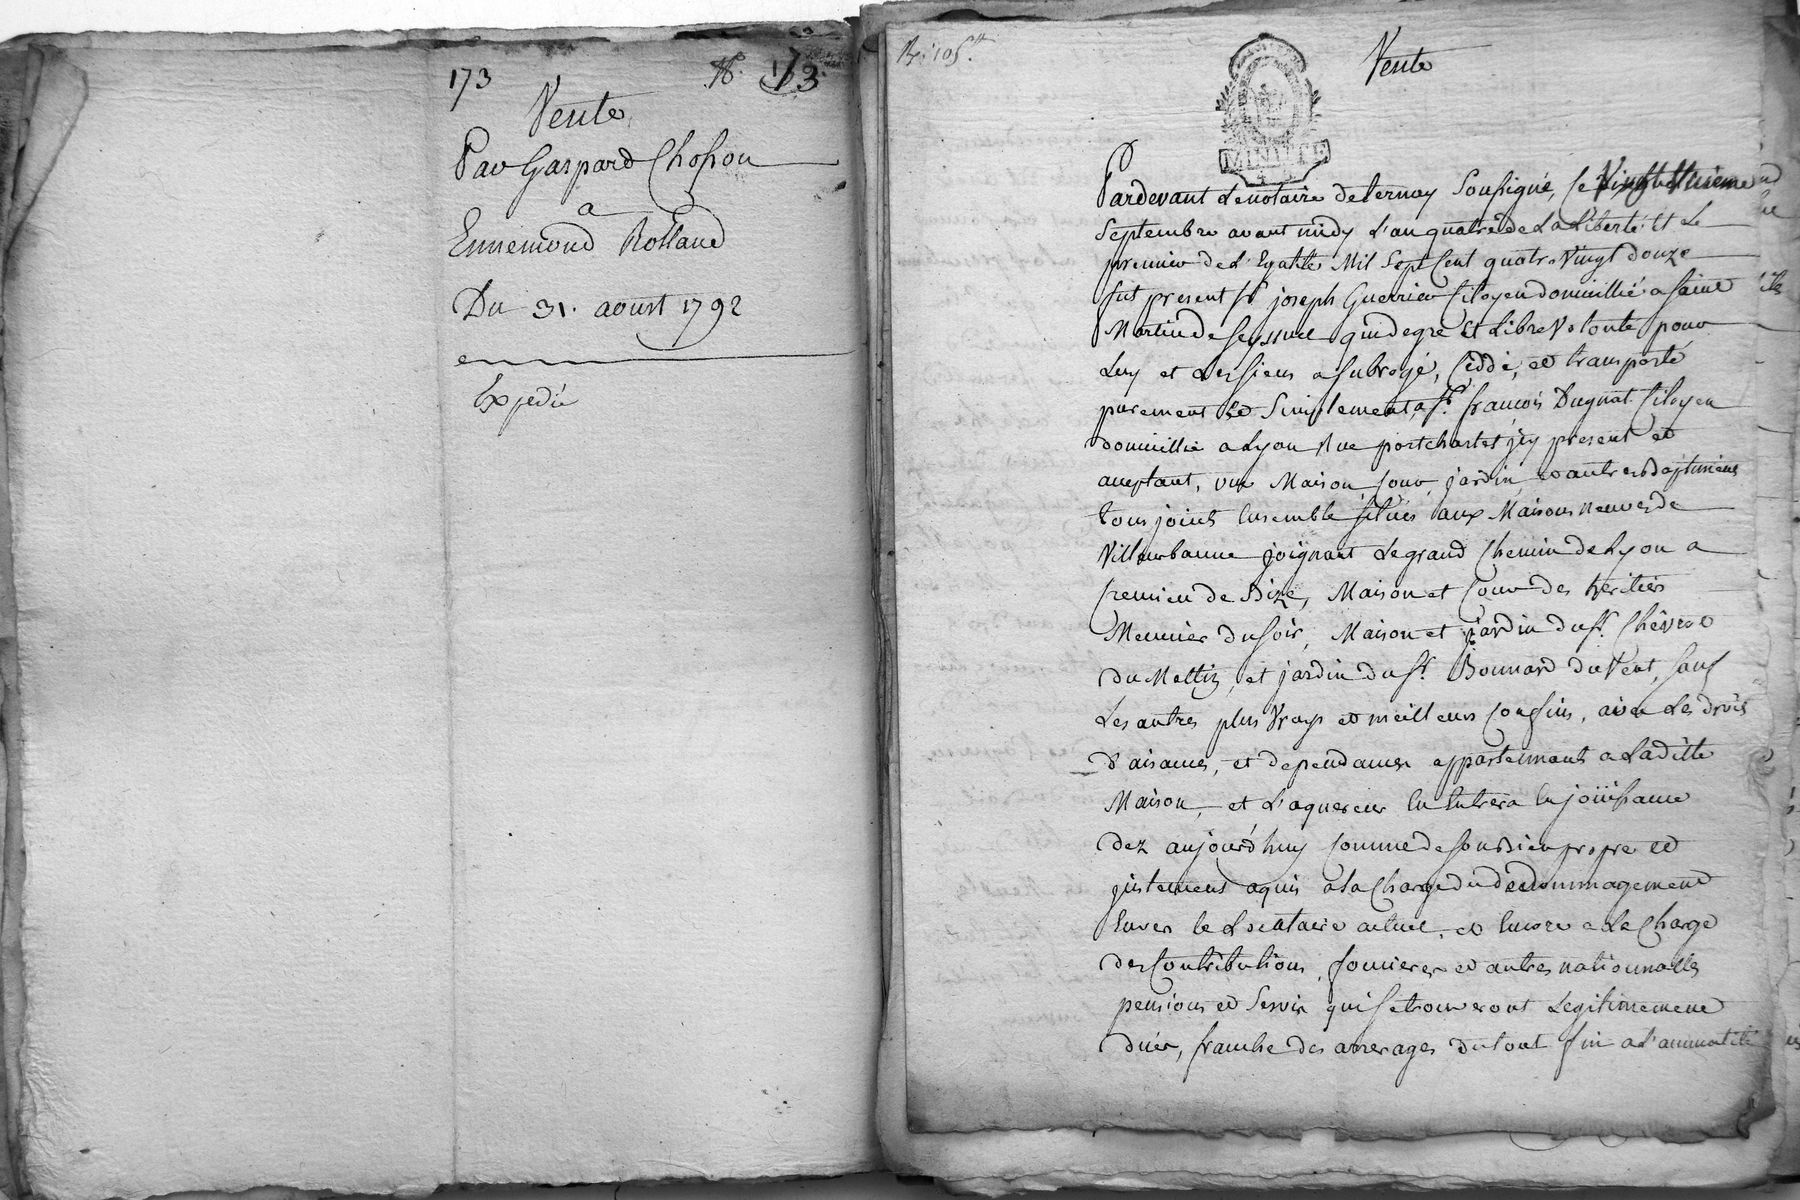 173
173
Vente
Par Gaspard Chosson
a
Ennemond Rolland
Du 31. aoust 1792
Expedié
Vente
MINUTE
Pardevant Le notaire de ternay Soussigné, Ce Vingt
Septembre avant midy L'an quatre de La Liberté Et Le
premier de L'Egalité Mil Sept Cent quatre Vingt douze
fut present Sr. joseph Guerrier Citoyen domicillié a Saint
Martin de Seyssuel qui de gré Et Libre Volonté pour
Luy et Les siens a Subrogé, Ceddé, et transporté
purement Et Simplement, a Sr. francois Dugnat Citoyen
domicillié a Lyon Rue port charlet jcy present et
aceptant, une Maison, Cour, jardin, et autres Baptiments
tous joints Ensemble Situés aux Maisons neuves de
Villeurbanne joignant Le grand Chemin de Lyon a
Cremieu de Bize, Maison et Cour des heritiers
Meunier du soir, Maison et jardin du Sr. Chêvre
du Mattin, et jardin du Sr. Bonnard du Vent, Sauf
Les autres plus Vrays et meilleurs Confins, avec Les droits
d'aisances, et dependances appartennants a Laditte
Maison, et L'aquereur En Entrera En joüissance
dez aujourd'huy Comme de Son Bien propre et
justement aquis a la Charge du dedommagement
Envers le Locataire actuel, et Encore a La Charge
des Contributions, foncieres et autres nationnalles
pensions et Servis qui Se trouveront Legitimement
dües, franche des arrerages du tout